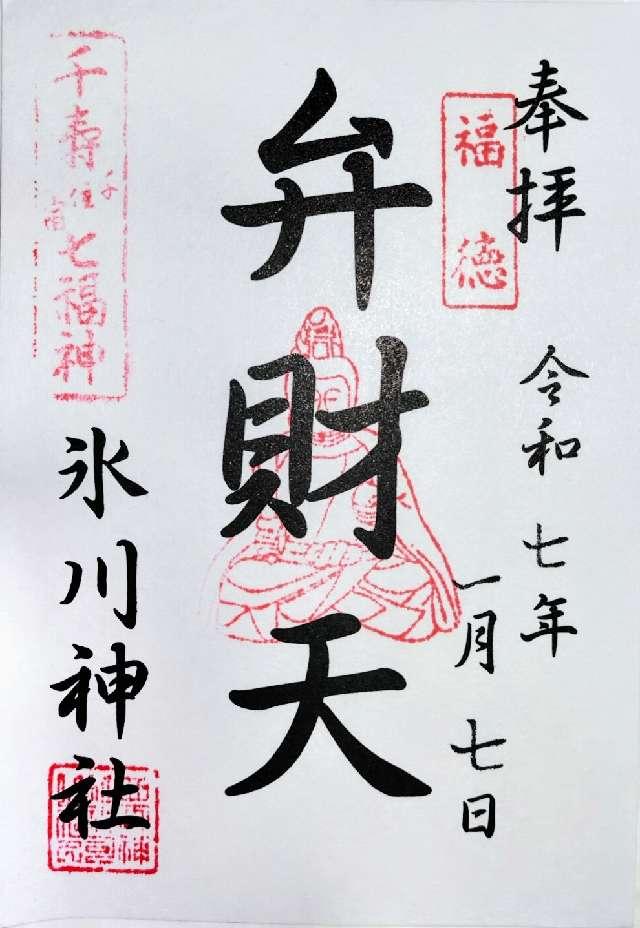 奉拝
福徳
令和七年
一月七日
弁財天
千寿七福神
氷川神社